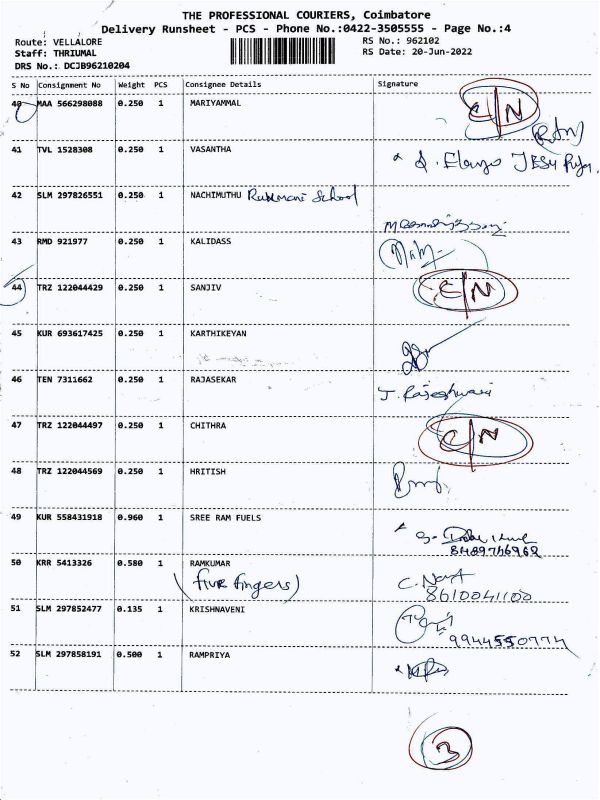 THE PROFESSIONAL COURIERS, Coimbatore
Delivery Runsheet - PCS - Phone No.:0422-3505555 - Page No.:4
Route: VELLALORE RS No.: 962102
Staff: THRIUMAL RS Date: 20-Jun-2022
DRS No.: DCJB96210204
S No Consignment No Weight PCS Consignee Details Signature
40 MAA 566298088 0.250 1 MARIYAMMAL C/N
41 TVL 1528308 0.250 1 VASANTHA
42 SLM 297826551 0.250 1 NACHIMUTHU Rukmani School
43 RMD 921977 0.250 1 KALIDASS
44 TRZ 122044429 0.250 1 SANJIV C/N
45 KUR 693617425 0.250 1 KARTHIKEYAN
46 TEN 7311662 0.250 1 RAJASEKAR J. Rajeshwari
47 TRZ 122044497 0.250 1 CHITHRA C/N
48 TRZ 122044569 0.250 1 HRITISH
49 KUR 558431918 0.960 1 SREE RAM FUELS
8489746968
50 KRR 5413326 0.580 1 RAMKUMAR
(five fingers) 8610041100
51 SLM 297852477 0.135 1 KRISHNAVENI
9944550774
52 SLM 297858191 0.500 1 RAMPRIYA
3